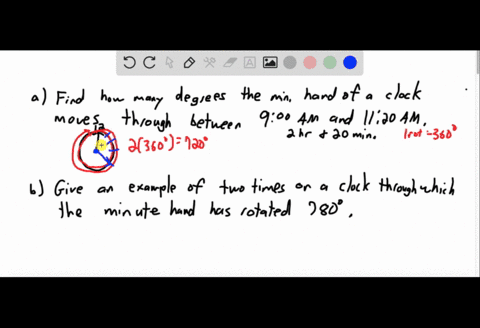 a) Find how many degrees the min. hand of a clock
moves through between 9:00 AM and 11:20 AM.
2 hr & 20 min. 1 rot - 360°
12
2(360°) = 720°
b) Give an example of two times on a clock through which
the minute hand has rotated 780°.